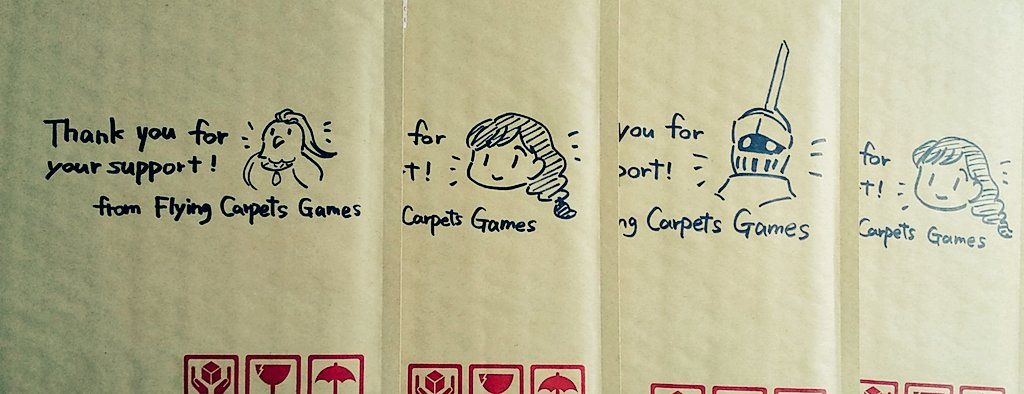 Thank you for
your support!
from Flying Carpets Games
for
t!
Carpets Games
you for
port!
ng Carpets Games
for
t!
Carpets Games